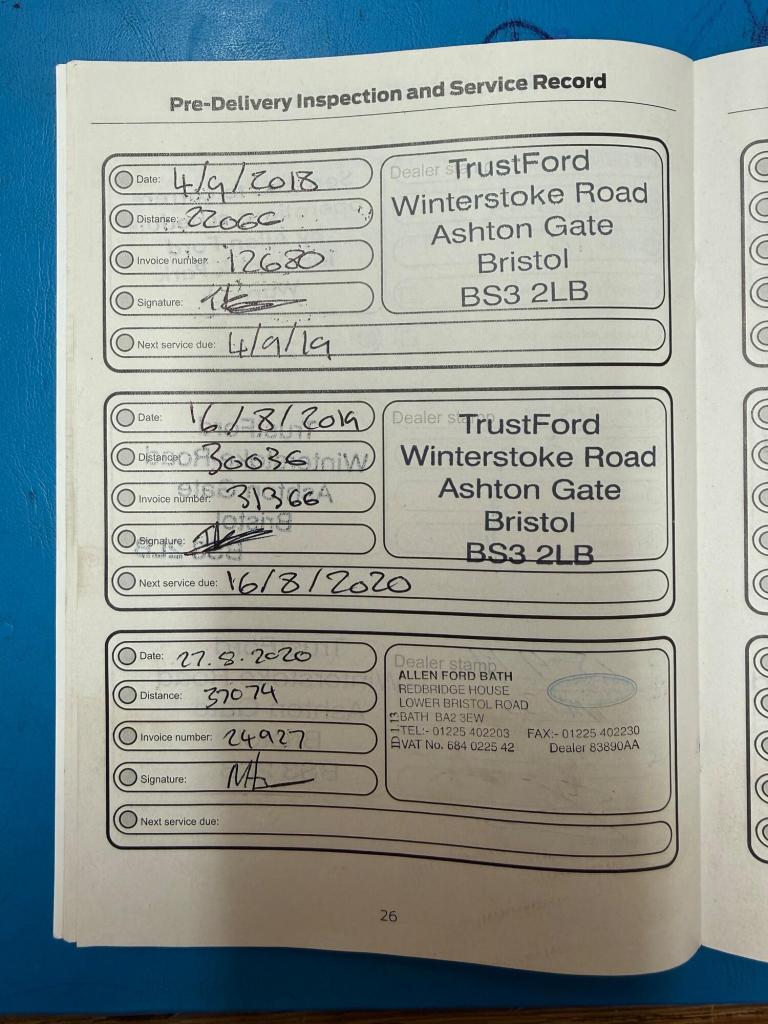 Pre-Delivery Inspection and Service Record
Date: 4/9/2018
Distance: 22066
Invoice number: 12680
Signature:
Next service due: 4/9/19
TrustFord
Winterstoke Road
Ashton Gate
Bristol
BS3 2LB
Date: 16/8/2019
Distance: 30036
Invoice number: 31366
Signature:
Next service due: 16/8/2020
Dealer stamp
TrustFord
Winterstoke Road
Ashton Gate
Bristol
BS3 2LB
Date: 27.8.2020
Distance: 37074
Invoice number: 24927
Signature:
Next service due:
Dealer stamp
ALLEN FORD BATH
REDBRIDGE HOUSE
LOWER BRISTOL ROAD
BATH BA2 3EW
TEL:- 01225 402203 FAX:- 01225 402230
VAT No. 684 0225 42 Dealer 83890AA
26